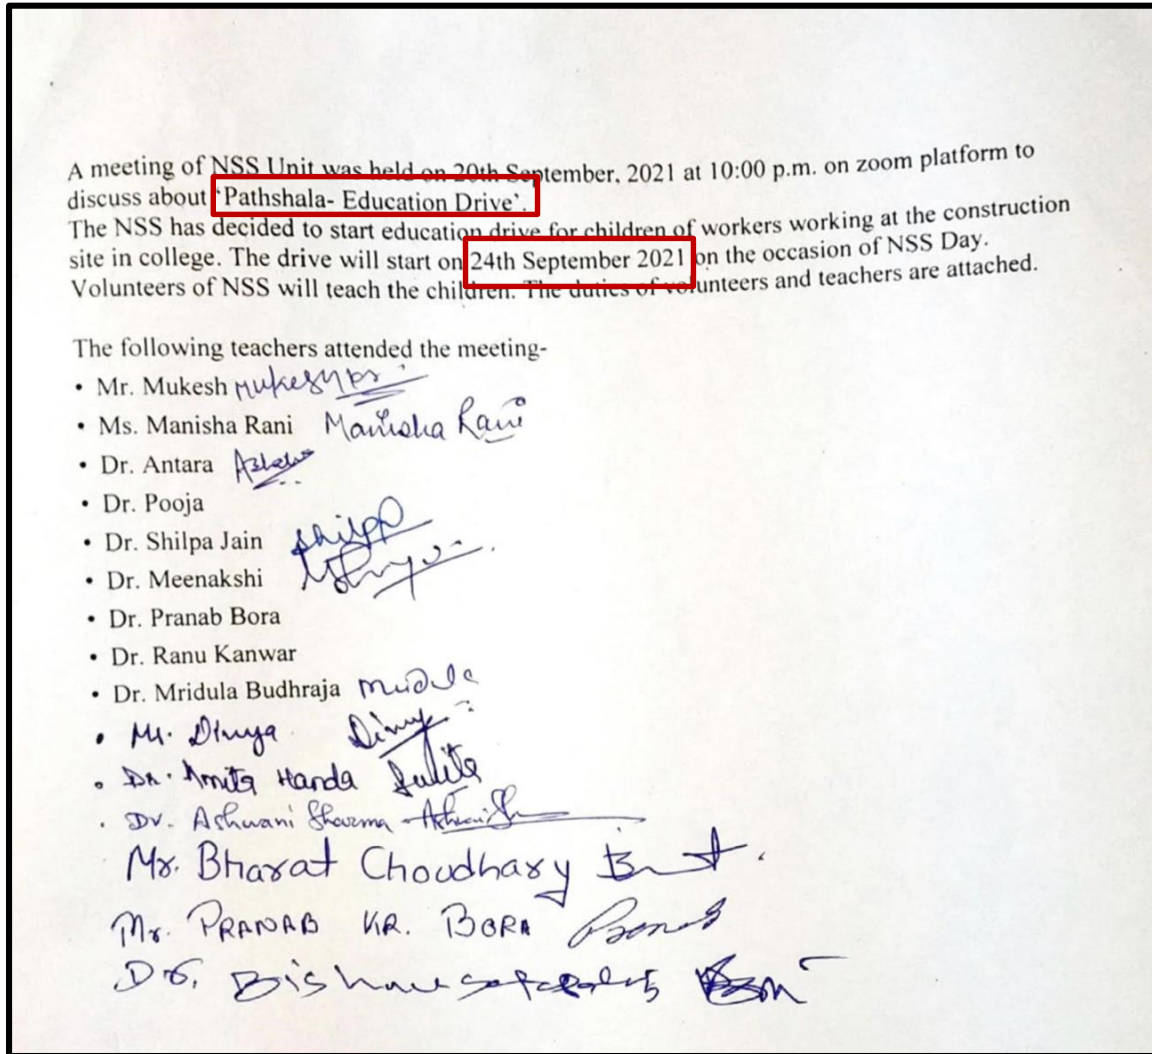 A meeting of NSS Unit was held on 20th September, 2021 at 10:00 p.m. on zoom platform to
discuss about 'Pathshala- Education Drive'.
The NSS has decided to start education drive for children of workers working at the construction
site in college. The drive will start on 24th September 2021 on the occasion of NSS Day.
Volunteers of NSS will teach the children. The duties of volunteers and teachers are attached.
The following teachers attended the meeting-
• Mr. Mukesh
• Ms. Manisha Rani Manisha Rani
• Dr. Antara
• Dr. Pooja
• Dr. Shilpa Jain Shilpa
• Dr. Meenakshi
• Dr. Pranab Bora
• Dr. Ranu Kanwar
• Dr. Mridula Budhraja Mridula
• Ms. Divya Divya
• Dr. Amita Handa
• Dr. Ashwani Sharma
Mr. Bharat Choudhary
Mr. PRANAB KR. BORA
Dr.